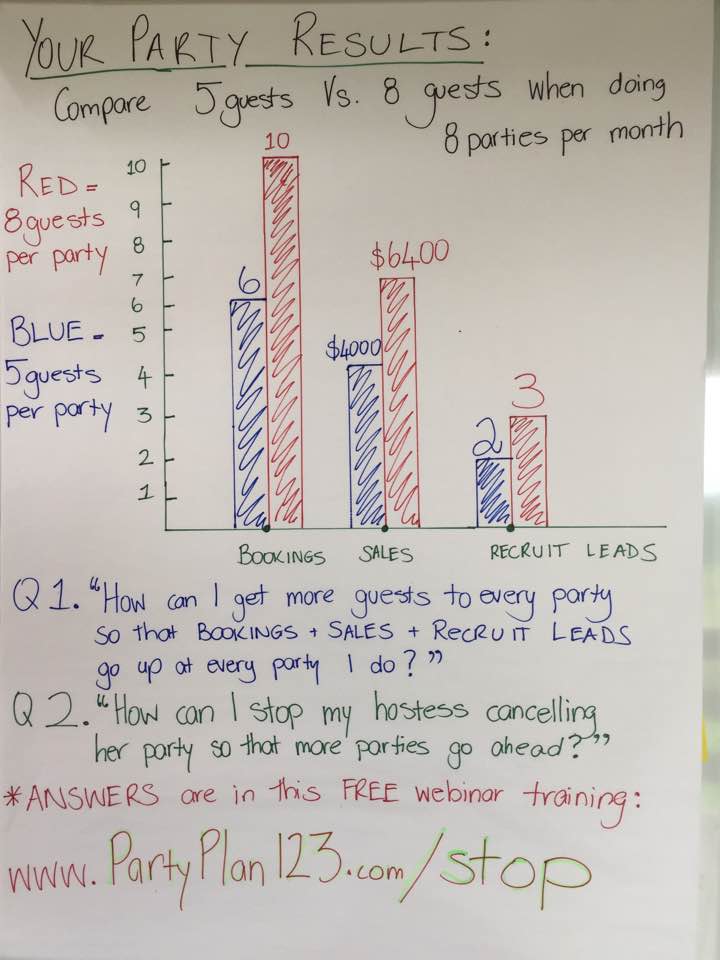 YOUR PARTY RESULTS:
Compare 5 guests Vs. 8 guests when doing
8 parties per month
RED =
8 guests
per party
BLUE =
5 guests
per party
10
9
8
7
6
5
4
3
2
1
6
10
$4000
$6400
2
3
BOOKINGS SALES RECRUIT LEADS
Q1. "How can I get more guests to every party
so that BOOKINGS + SALES + RECRUIT LEADS
go up at every party I do?"
Q2. "How can I stop my hostess cancelling
her party so that more parties go ahead?"
*ANSWERS are in this FREE webinar training:
www.PartyPlan123.com/stop